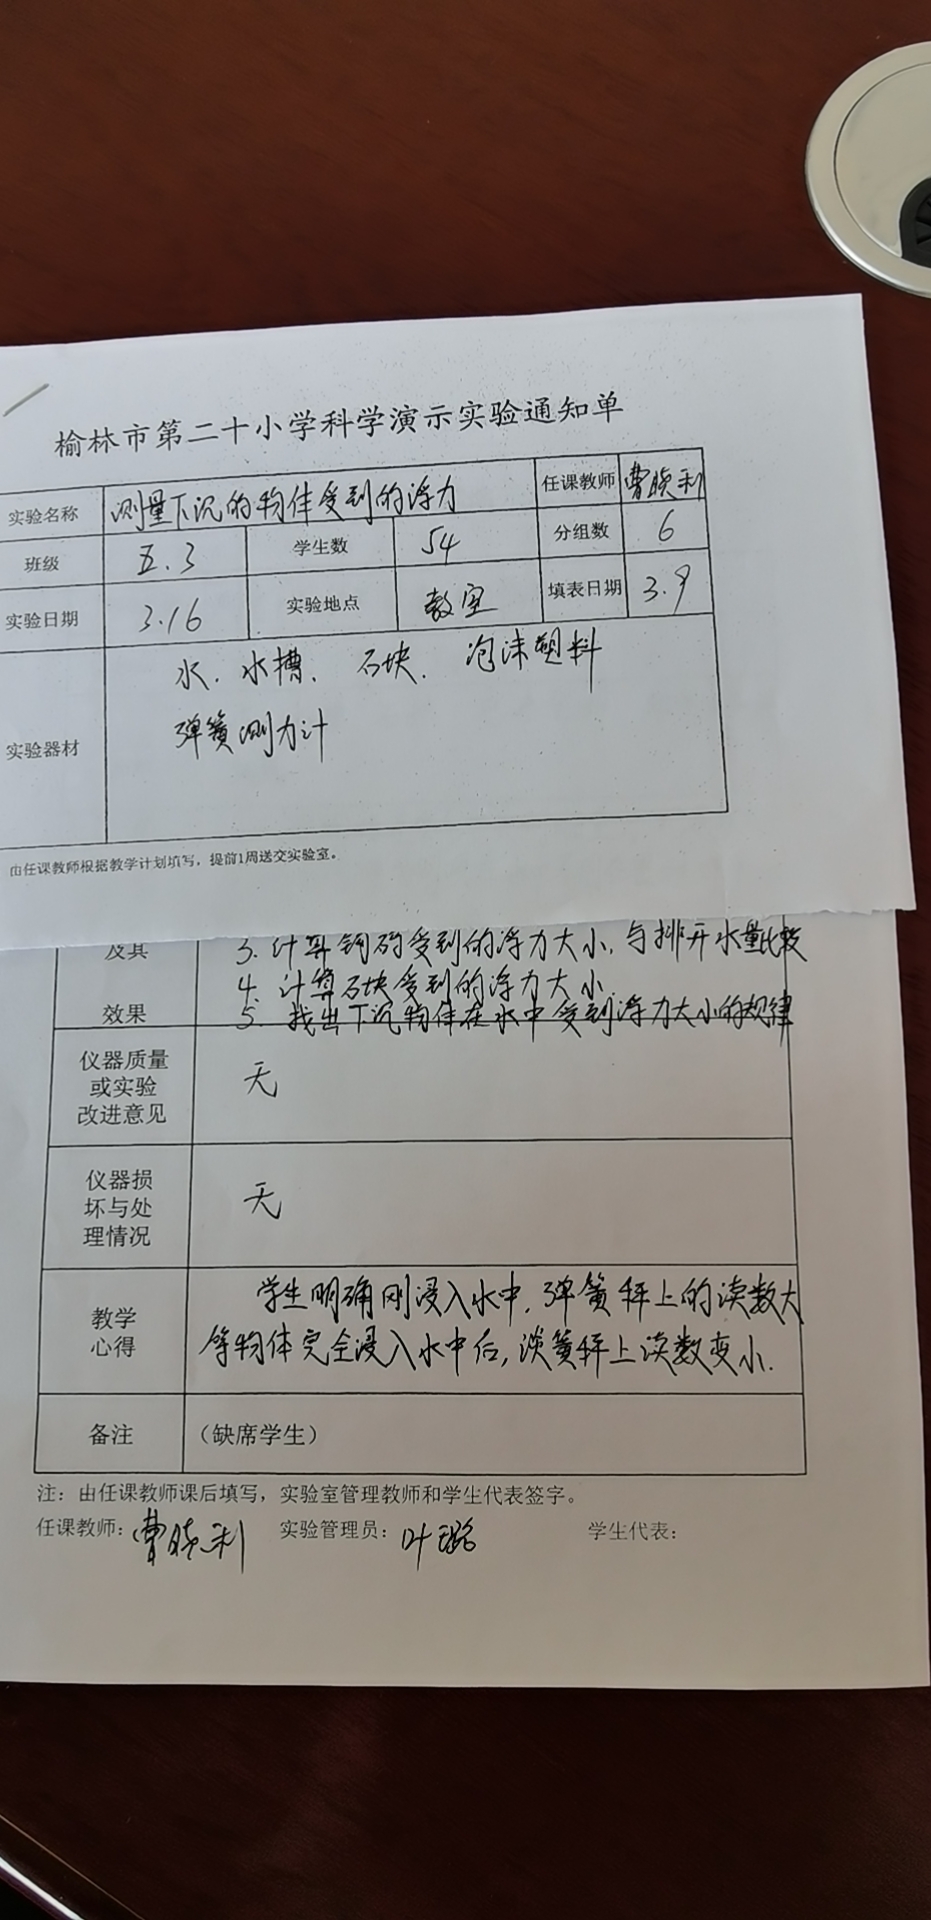 榆林市第二十小学科学演示实验通知单
实验名称 测量下沉的物体受到的浮力 任课教师 曹晓利
班级 五.3 学生数 54 分组数 6
实验日期 3.16 实验地点 教室 填表日期 3.9
水、水槽、石块、泡沫塑料
弹簧测力计
实验器材
由任课教师根据教学计划填写，提前1周送交实验室。
及其 3. 计算钩码受到的浮力大小，与排开水量比较
4. 计算石块受到的浮力大小
效果 5. 找出下沉物体在水中受到浮力大小的规律
仪器质量
或实验
改进意见
无
仪器损
坏与处
理情况
无
教学
心得
学生明确刚浸入水中，弹簧秤上的读数大
等物体完全浸入水中后，淡簧秤上读数变小.
备注 （缺席学生）
注：由任课教师课后填写，实验室管理教师和学生代表签字。
任课教师：曹晓利 实验管理员：叶璐 学生代表：